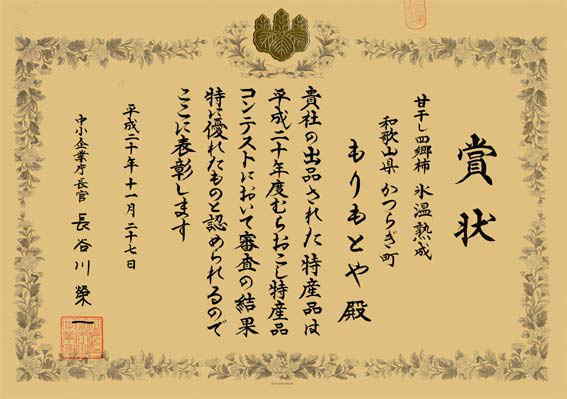 賞状
甘干し四郷柿 氷温熟成
和歌山県 かつらぎ町
もりもとや 殿
貴社の出品された特産品は
平成二十年度むらおこし特産品
コンテストにおいて審査の結果
特に優れたものと認められるので
ここに表彰します
平成二十年十一月二十七日
中小企業庁長官 長谷川 榮一